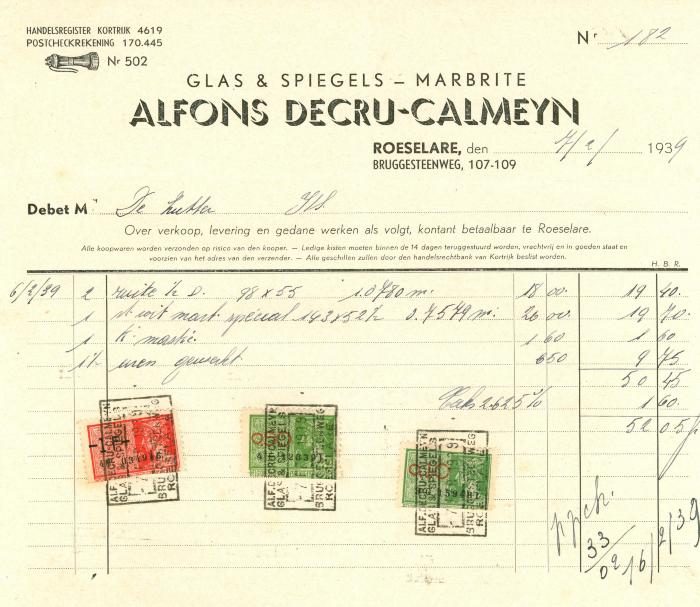 HANDELSREGISTER KORTRIJK 4619
POSTCHECKREKENING 170.445
Nr 502
Nr 182
GLAS & SPIEGELS – MARBRITE
ALFONS DECRU-CALMEYN
ROESELARE, den 7/2/ 1939
BRUGGESTEENWEG, 107-109
Debet M De
Over verkoop, levering en gedane werken als volgt, kontant betaalbaar te Roeselare.
Alle koopwaren worden verzonden op risico van den kooper. — Ledige kisten moeten binnen de 14 dagen teruggestuurd worden, vrachtvrij en in goeden staat en
voorzien van het adres van den verzender. — Alle geschillen zullen door den handelsrechtbank van Kortrijk beslist worden.
H. B. R.
6/2/39 2 ruite 98 x 55 1.0780 m. 18 00. 19 40.
1 wit special 143 x 52 ½ 0.7579 m. 26 00. 19 70.
1 K. mastic 1 60 1 60
1 ½ uren gewerkt 6 50 9 75
50 45
Taks 2.625 % 1 60.
52 05
ALF. DECRU-CALMEYN
GLAS & SPIEGELS
BRUGGESTEENWEG
ALF. DECRU-CALMEYN
GLAS & SPIEGELS
BRUGGESTEENWEG
ALF. DECRU-CALMEYN
GLAS & SPIEGELS
BRUGGESTEENWEG
33
16/2/39